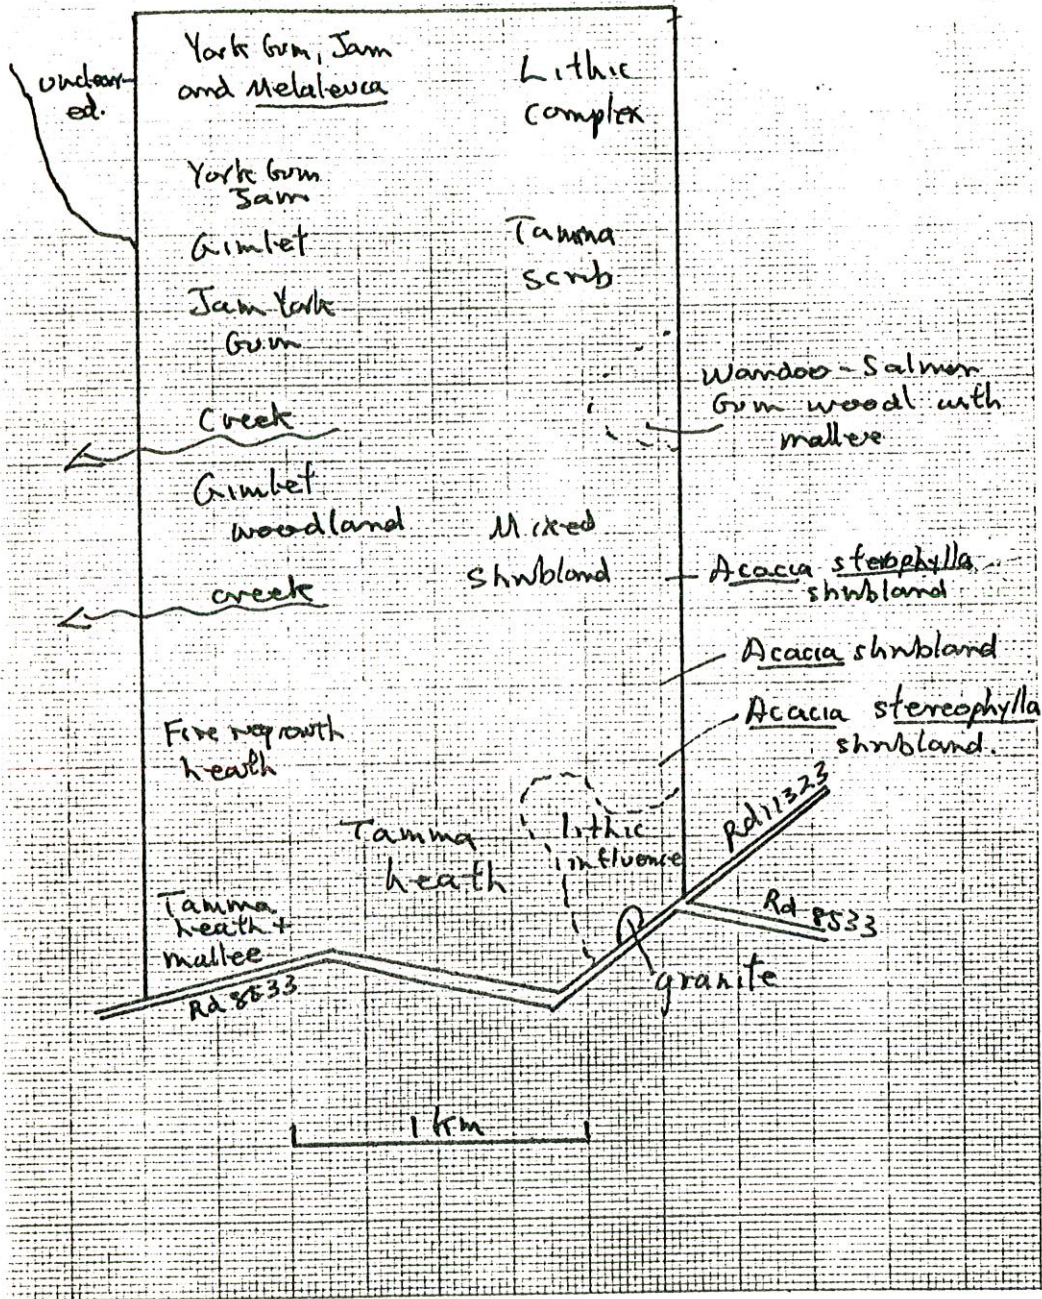 York Gum, Jam
and Melaleuca
Lithic
complex
unclear-
ed.
York Gum
Jam
Gimlet
Tamma
scrub
Jam York
Gum
Wandoo - Salmon
Gum woodl with
mallee
Creek
Gimlet
woodland
Mixed
shrubland
Acacia sterophylla
shrubland
creek
Acacia shrubland
Acacia stereophylla
shrubland.
Fire regrowth
heath
Rd 11323
Tamma
heath
lithic
influence
Rd 8533
Tamma
heath +
mallee
Rd 8533
granite
1 km